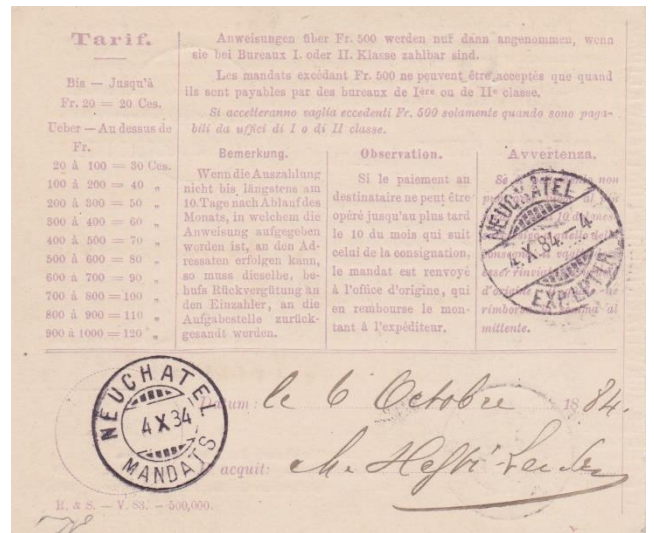 Tarif.
Bis — Jusqu'à
Fr. 20 = 20 Ces.
Ueber — Au dessus de
Fr.
20 à 100 = 30 Ces.
100 à 200 = 40 „
200 à 300 = 50 „
300 à 400 = 60 „
400 à 500 = 70 „
500 à 600 = 80 „
600 à 700 = 90 „
700 à 800 = 100 „
800 à 900 = 110 „
900 à 1000 = 120 „
Anweisungen über Fr. 500 werden nur dann angenommen, wenn
sie bei Bureaux I. oder II. Klasse zahlbar sind.
Les mandats excédant Fr. 500 ne peuvent être acceptés que quand
ils sont payables par des bureaux de Ière ou de IIe classe.
Si accetteranno vaglia eccedenti Fr. 500 solamente quando sono paga-
bili da uffici di I o di II classe.
Bemerkung.
Wenn die Auszahlung
nicht bis längstens am
10. Tage nach Ablauf des
Monats, in welchem die
Anweisung aufgegeben
worden ist, an den Ad-
ressaten erfolgen kann,
so muss dieselbe, be-
hufs Rückvergütung an
den Einzahler, an die
Aufgabestelle zurück-
gesandt werden.
Observation.
Si le paiement au
destinataire ne peut être
opéré jusqu'au plus tard
le 10 du mois qui suit
celui de la consignation,
le mandat est renvoyé
à l'office d'origine, qui
en rembourse le mon-
tant à l'expéditeur.
Avvertenza.
non
al
mittente.
NEUCHÂTEL
4. X. 84. - 4.
EXP. LETTR.
NEUCHATEL
4 X 84
MANDATS
Datum: le 6 Octobre 1884.
acquit:
R. & S. — V. 83. — 500,000.